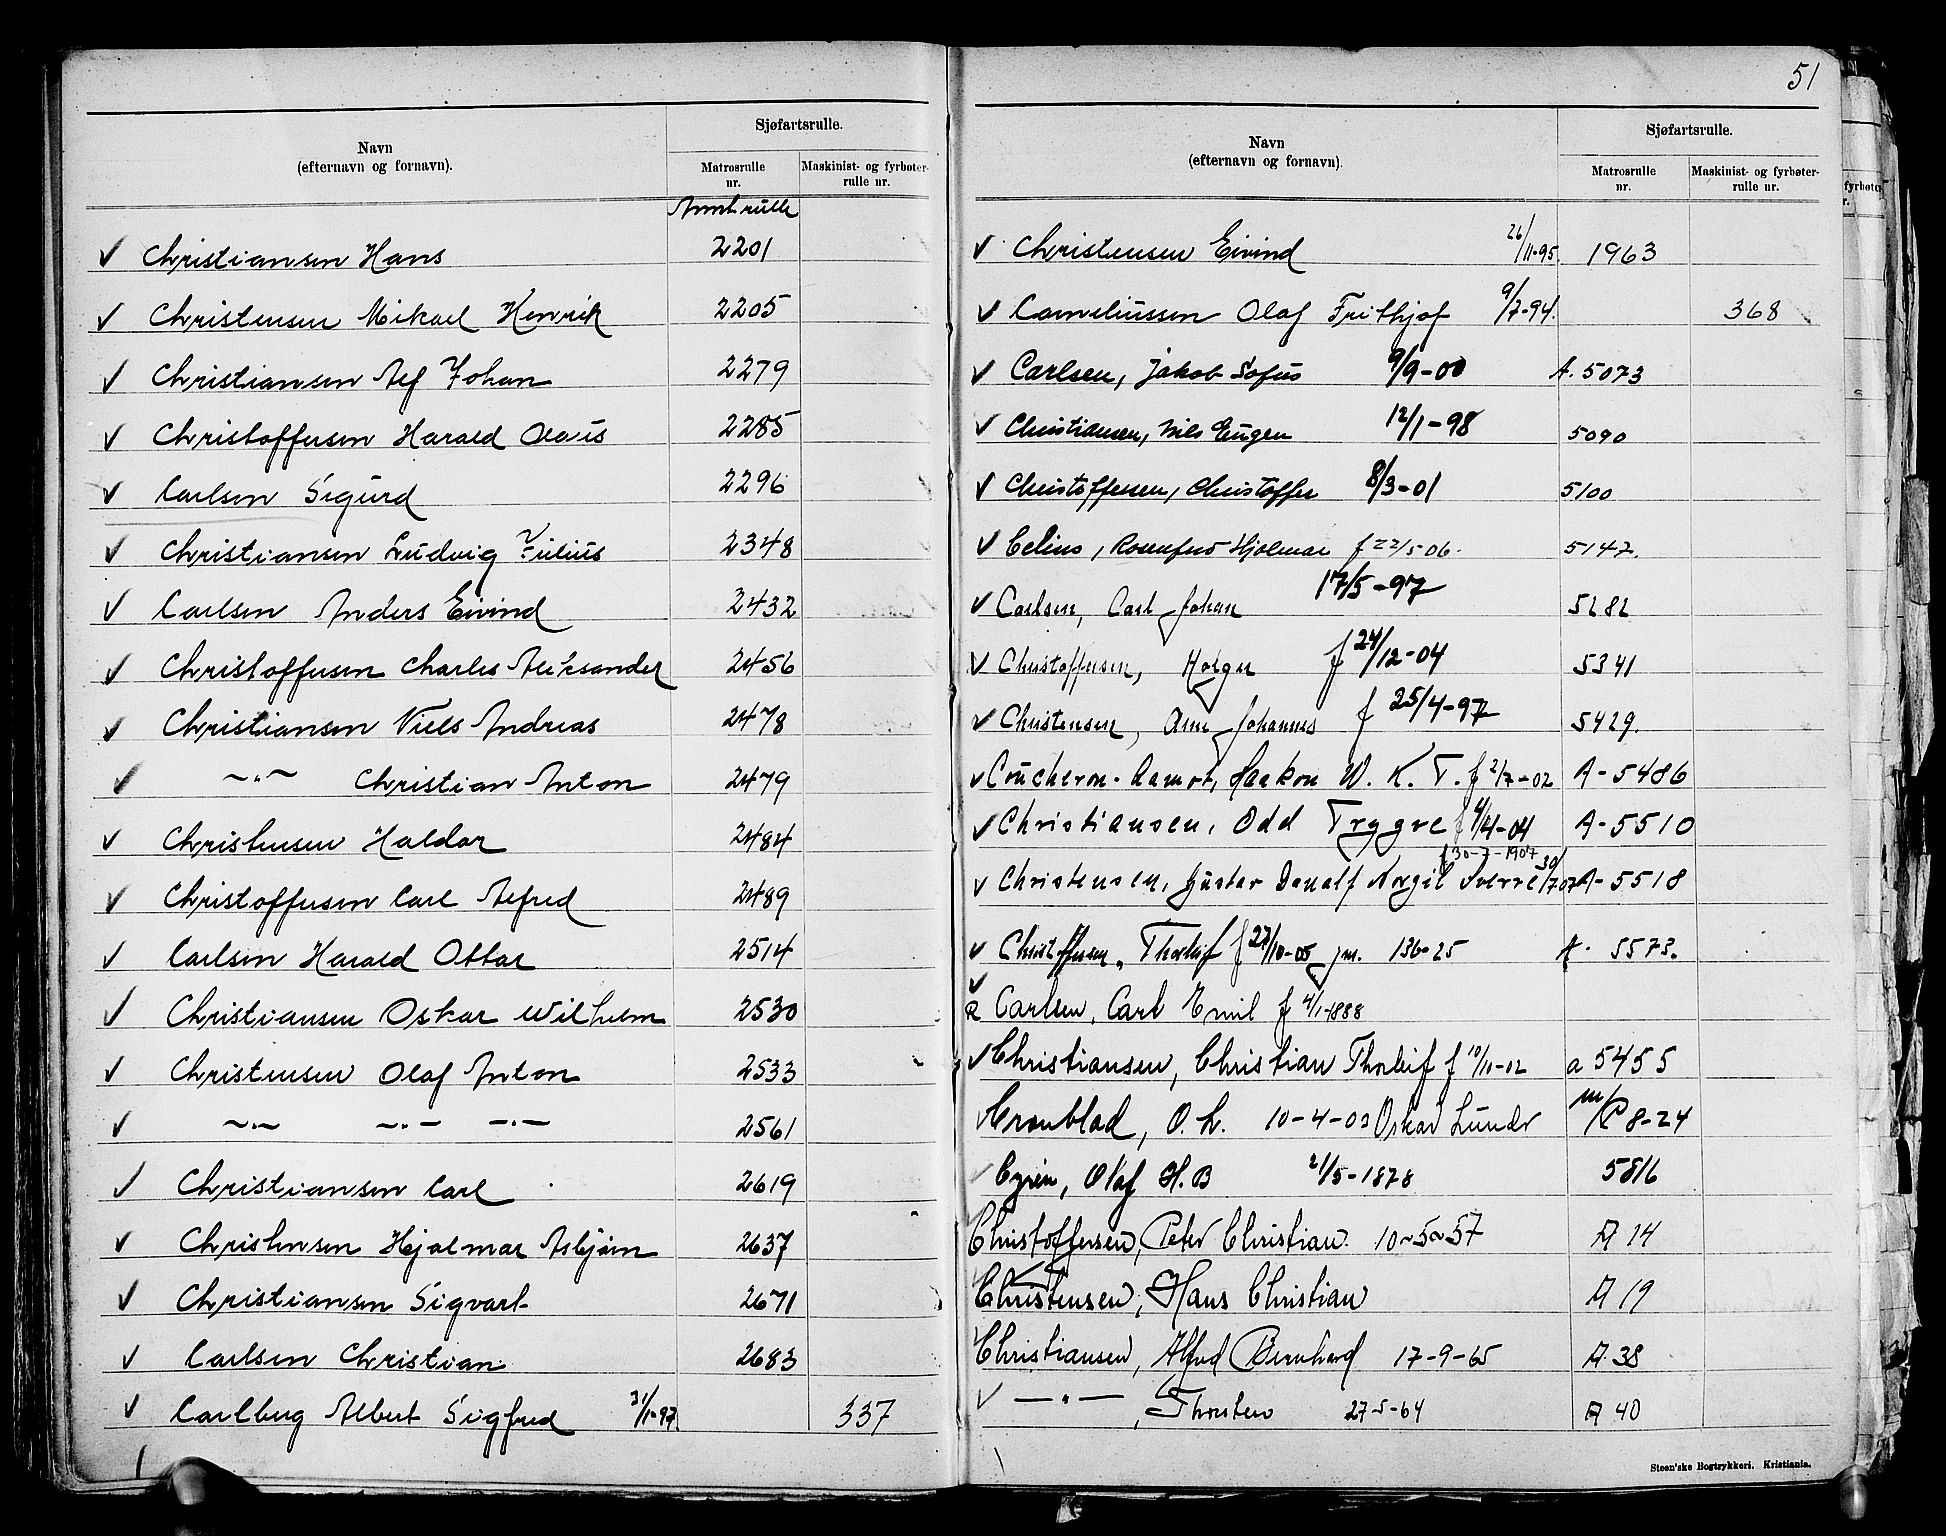 Navn
(efternavn og fornavn).
Sjøfartsrulle.
Matrosrulle
nr.
Maskinist- og fyrbøter-
rulle nr.
Christiansen Hans 2201
Christensen Mikael Henrik 2205
Christiansen Alf Johan 2279
Christoffersen Harald Olaus 2285
Carlsen Sigurd 2296
Christiansen Ludvig Julius 2348
Carlsen Anders Eivind 2432
Christoffersen Charles Aleksander 2456
Christiansen Niels Andreas 2478
~"~ Christian Anton 2479
Christensen Haldor 2484
Christoffersen Carl Alfred 2489
Carlsen Harald Ottar 2514
Christiansen Oskar Wilhelm 2530
Christensen Olaf Anton 2533
~"~ ~"~ ~"~ 2561
Christiansen Carl 2619
Christensen Hjalmar Asbjørn 2637
Christiansen Sigvart 2671
Carlsen Christian 2683
Carlberg Albert Sigfred 31/1-97. 337
51
Navn
(efternavn og fornavn).
Sjøfartsrulle.
Matrosrulle
nr.
Maskinist- og fyrbøter-
rulle nr.
Christensen Eivind 26/11-95. 1963
Corneliussen Olaf Frithjof 9/7-94. 368
Carlsen, Jakob Sofus 9/9-00 A. 5073
Christiansen, Nils Eugen 12/1-98 5090
Christoffersen, Christoffer 8/3-01 5100
Celius, Hjalmar f 22/5 06. 5147.
Carlsen, Carl Johan 17/5-97 5282
Christoffersen, Holger f 24/12-04 5341
Christensen, Arne Johannes f 25/4-97 5429.
Coucheron-Aamot, Haakon W. K. T. f 2/7-02 A-5486
Christiansen, Odd Trygve f 4/4-04 A-5510
f 30-7-1907
Christensen, Gustav Norgil Sverre 30/7 07 A-5518
Christoffersen, Thorleif f 27/10-05 jm. 136-25 A. 5573.
R Carlsen, Carl Emil f 4/1-1888
Christiansen, Christian Thorleif f 10/10-02 a 5455
Cronblad, O. L. 10-4-03 Oskar m/C 8-24
Cyrén, Olaf H. B 21/5-1878 5816
Christoffersen, Peter Christian. 10-5-57 A 14
Christensen, Hans Christian A 19
Christiansen, Alfred Bernhard 17-9-65 A 38
—"—, Thorsten 27-5-64 A 40
Steen'ske Bogtrykkeri. Kristiania.